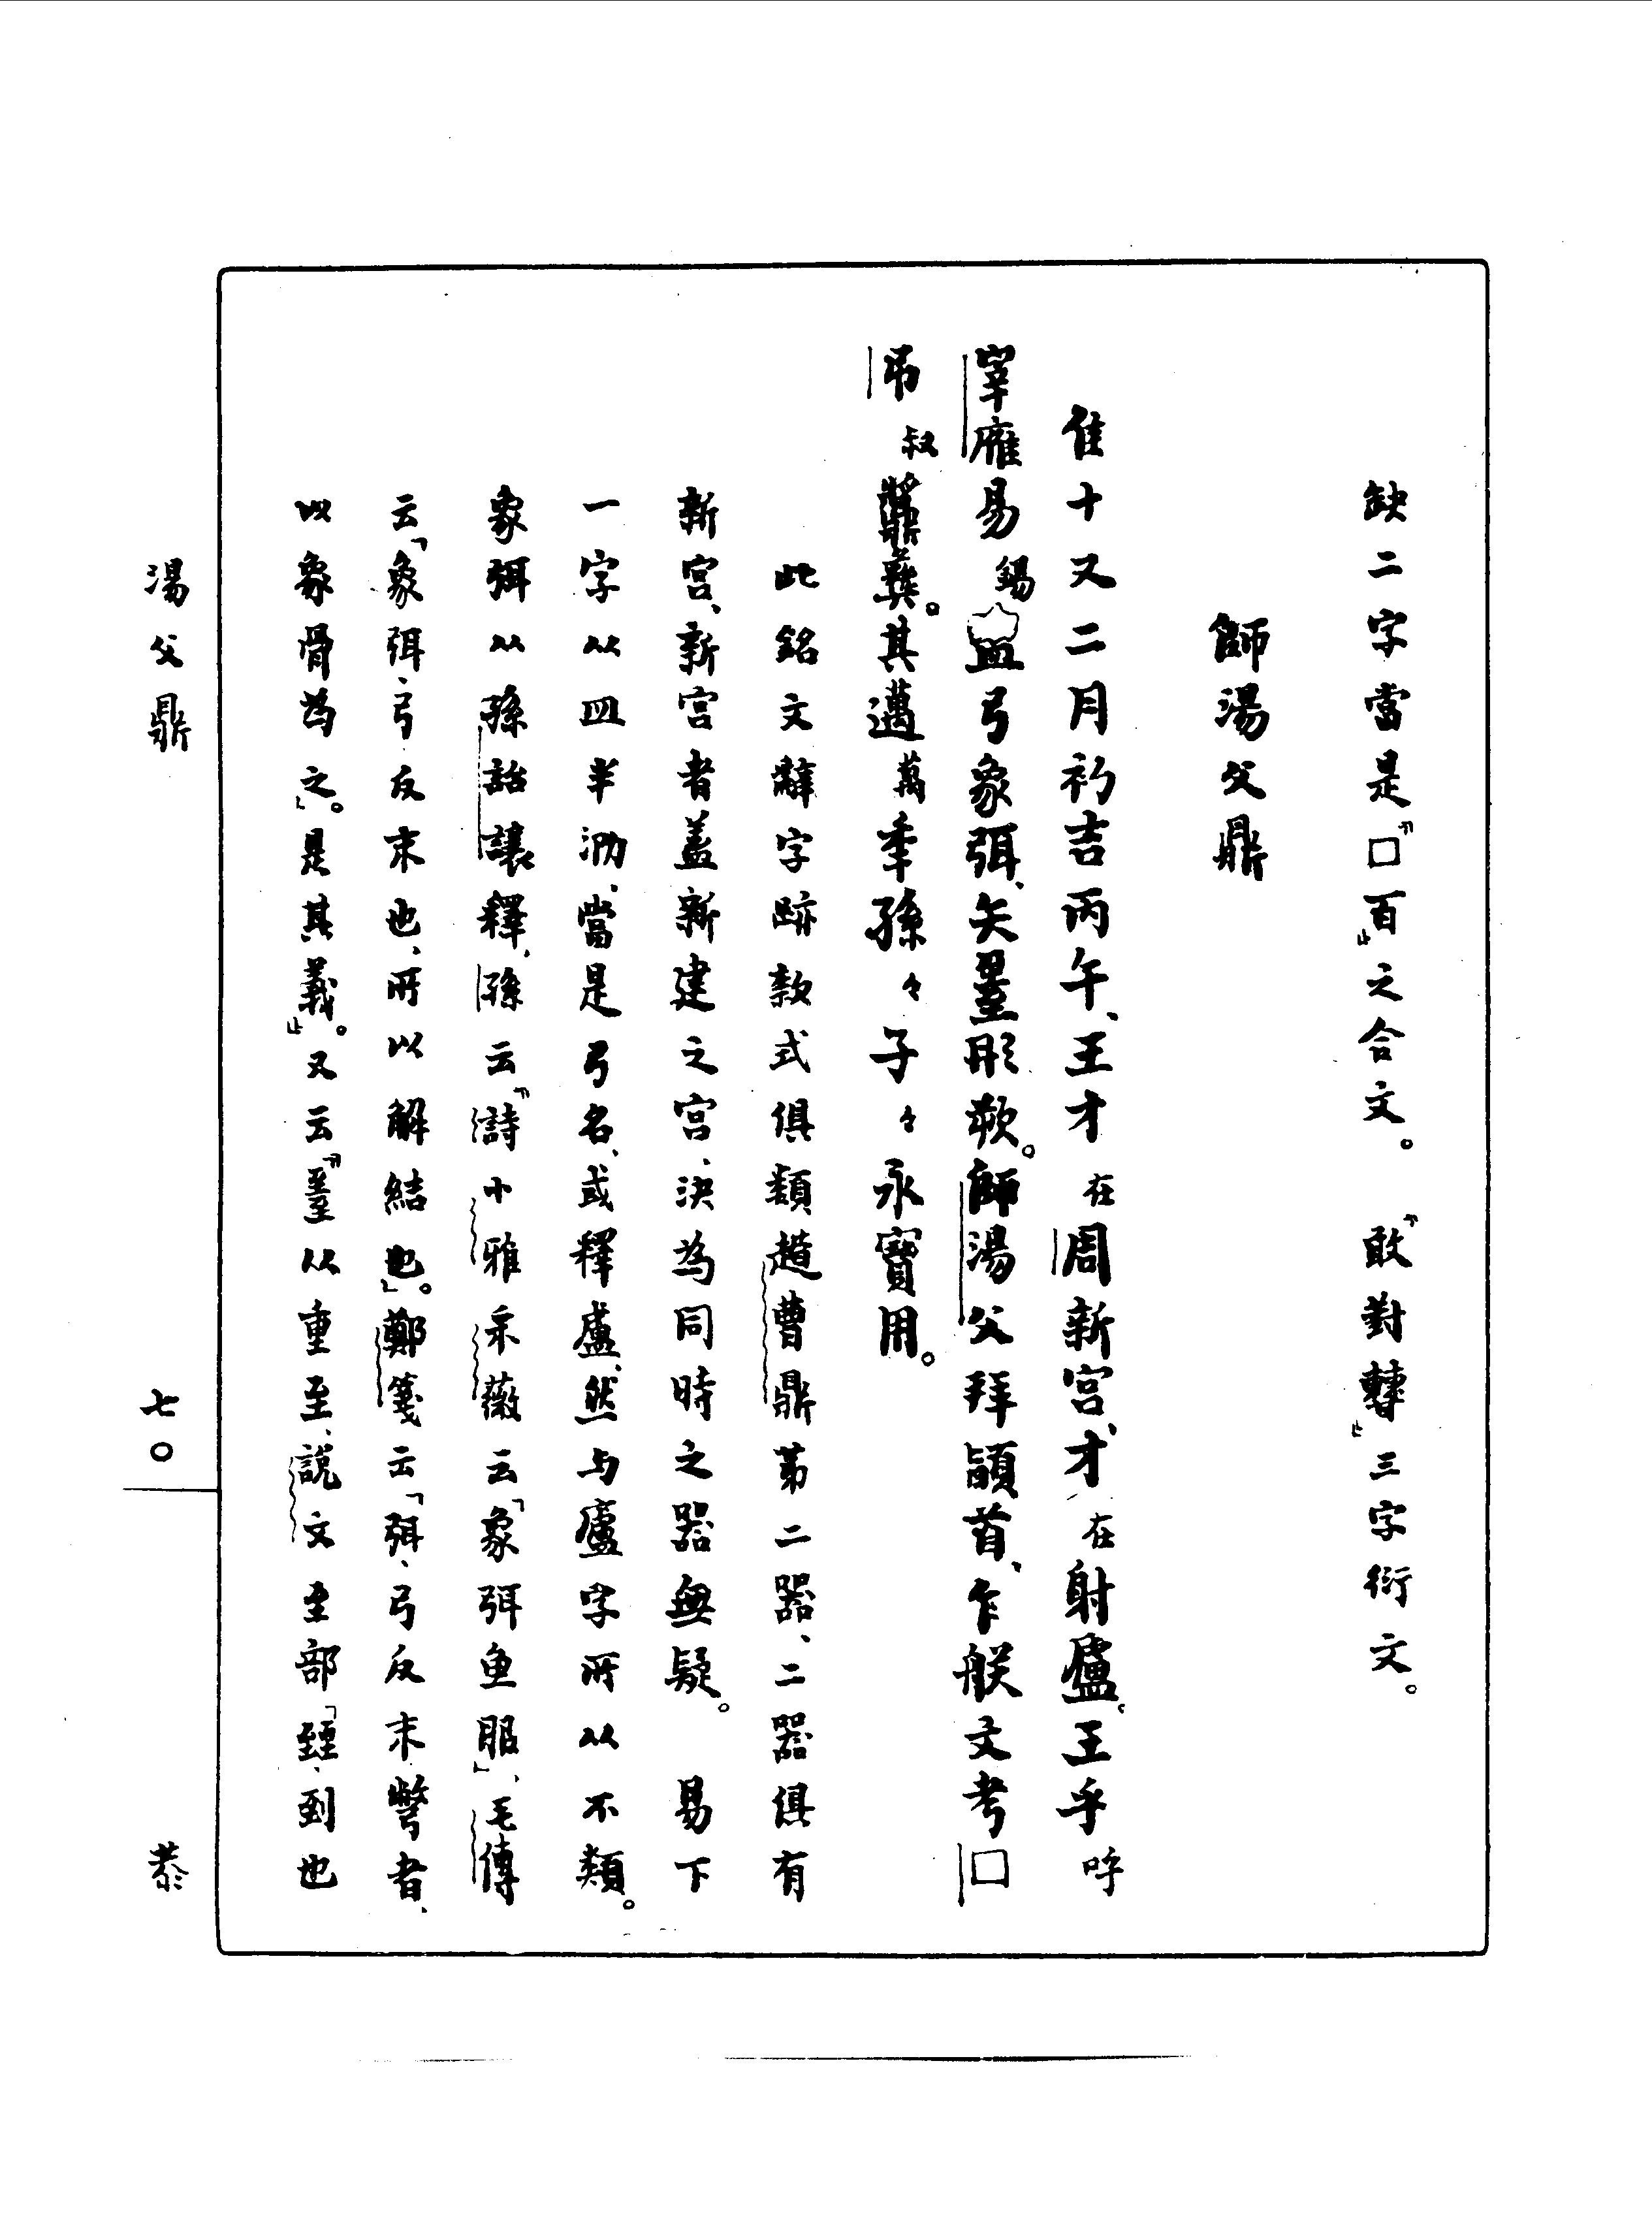 缺二字當是『□百』之合文。『敢對𩌏』三字衍文。
師湯父鼎
隹十又二月初吉丙午、王才在周新宮、才在射廬、王乎呼
宰雁易錫弓象弭、矢臸彤欮。師湯父拜䭫首、乍朕文考□
弔叔䵼彝。其邁萬季孫々子々永寶用。
此銘文辭字跡款式俱類趞曹鼎第二器、二器俱有
新宮、新宮者蓋新建之宮、決為同時之器無疑。易下
一字从皿半泐、當是弓名、或釋盧、然与廬字所从不類。
象弭从孫詒讓釋、孫云『詩小雅采薇云「象弭魚服」、毛傳
云「象弭、弓反末也、所以解結也。」鄭箋云「弭、弓反末彆者、
以象骨為之。」是其義。』又云『臸从重至、說文至部「臸、到也
湯父鼎
七〇
恭